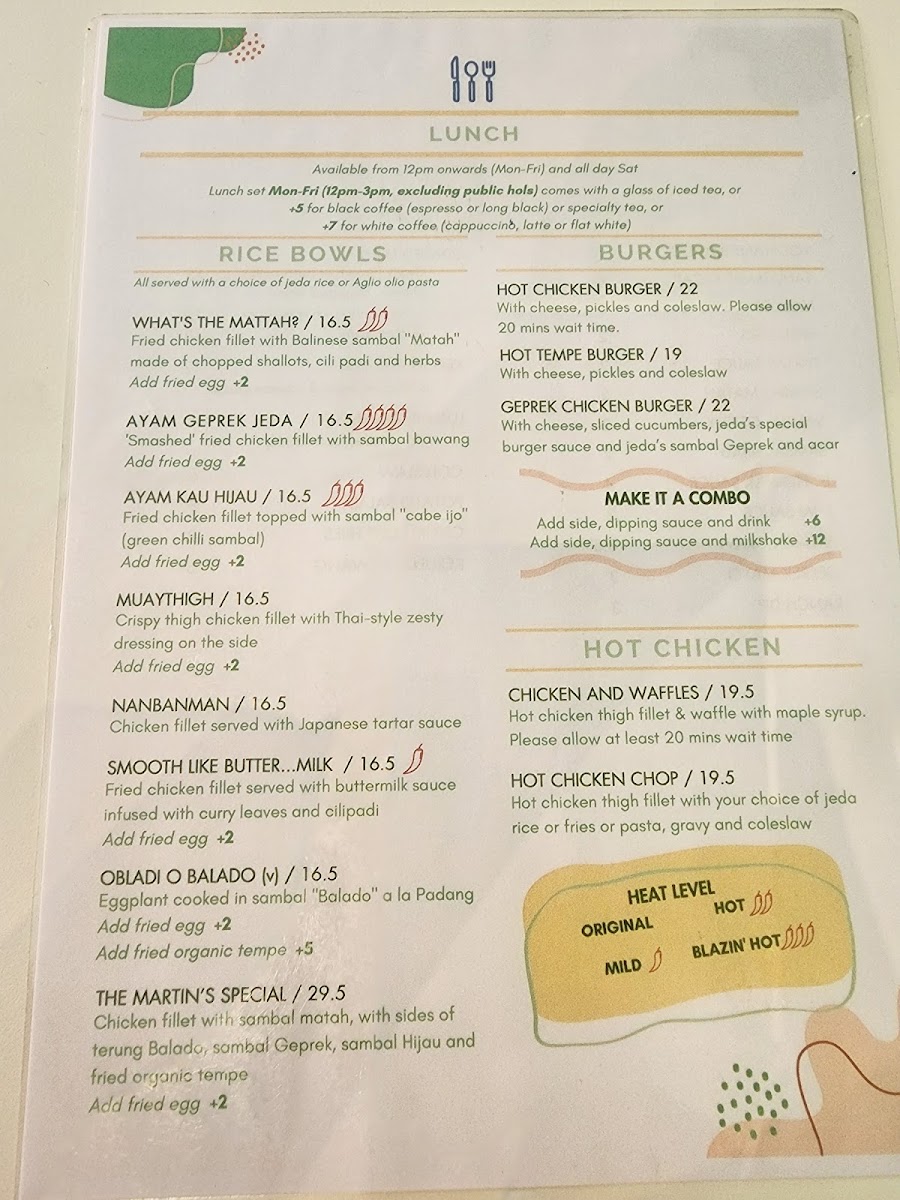 LUNCH
Available from 12pm onwards (Mon-Fri) and all day Sat
Lunch set Mon-Fri (12pm-3pm, excluding public hols) comes with a glass of iced tea, or
+5 for black coffee (espresso or long black) or specialty tea, or
+7 for white coffee (cappuccino, latte or flat white)
RICE BOWLS
All served with a choice of jeda rice or Aglio olio pasta
WHAT'S THE MATTAH? / 16.5
Fried chicken fillet with Balinese sambal "Matah"
made of chopped shallots, cili padi and herbs
Add fried egg +2
AYAM GEPREK JEDA / 16.5
'Smashed' fried chicken fillet with sambal bawang
Add fried egg +2
AYAM KAU HIJAU / 16.5
Fried chicken fillet topped with sambal "cabe ijo"
(green chilli sambal)
Add fried egg +2
MUAYTHIGH / 16.5
Crispy thigh chicken fillet with Thai-style zesty
dressing on the side
Add fried egg +2
NANBANMAN / 16.5
Chicken fillet served with Japanese tartar sauce
SMOOTH LIKE BUTTER...MILK / 16.5
Fried chicken fillet served with buttermilk sauce
infused with curry leaves and cilipadi
Add fried egg +2
OBLADI O BALADO (v) / 16.5
Eggplant cooked in sambal "Balado" a la Padang
Add fried egg +2
Add fried organic tempe +5
THE MARTIN'S SPECIAL / 29.5
Chicken fillet with sambal matah, with sides of
terung Balado, sambal Geprek, sambal Hijau and
fried organic tempe
Add fried egg +2
BURGERS
HOT CHICKEN BURGER / 22
With cheese, pickles and coleslaw. Please allow
20 mins wait time.
HOT TEMPE BURGER / 19
With cheese, pickles and coleslaw
GEPREK CHICKEN BURGER / 22
With cheese, sliced cucumbers, jeda's special
burger sauce and jeda's sambal Geprek and acar
MAKE IT A COMBO
Add side, dipping sauce and drink +6
Add side, dipping sauce and milkshake +12
HOT CHICKEN
CHICKEN AND WAFFLES / 19.5
Hot chicken thigh fillet & waffle with maple syrup.
Please allow at least 20 mins wait time
HOT CHICKEN CHOP / 19.5
Hot chicken thigh fillet with your choice of jeda
rice or fries or pasta, gravy and coleslaw
HEAT LEVEL
ORIGINAL HOT
MILD BLAZIN' HOT